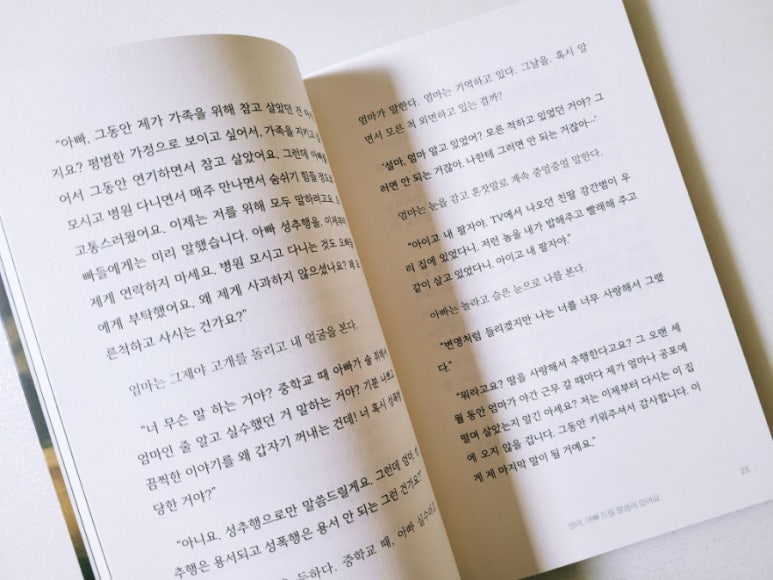 "아빠, 그동안 제가 가족을 위해 참고 살았던 건
지요? 평범한 가정으로 보이고 싶어서, 가족을 지키고
어서 그동안 연기하면서 참고 살았어요. 그런데 아빠를
모시고 병원 다니면서 매주 만나면서 숨쉬기 힘들 정도로
고통스러웠어요. 이제는 저를 위해 모두 말하려고요.
빠들에게는 미리 말했습니다. 아빠 성추행을. 이제부터
제게 연락하지 마세요. 병원 모시고 다니는 것도 오빠들
에게 부탁했어요. 왜 제게 사과하지 않으셨나요? 왜
른척하고 사시는 건가요?"
엄마는 그제야 고개를 돌리고 내 얼굴을 본다.
"너 무슨 말 하는 거야? 중학교 때 아빠가 술 취해서
엄마인 줄 알고 실수했던 거 말하는 거야? 기분 나쁘고
끔찍한 이야기를 왜 갑자기 꺼내는 건데! 너 혹시 성폭행
당한 거야?"
"아니요. 성추행으로만 말씀드릴게요. 그런데 엄마,
추행은 용서되고 성폭행은 용서 안 되는 그런 건가요?"
등하다. 중학교 때, 아빠 실수라고
엄마가 말한다. 엄마는 기억하고 있다. 그날을. 혹시 알
면서 모른 척 외면하고 있는 걸까?
'설마, 엄마 알고 있었어? 모른 척하고 있었던 거야? 그
러면 안 되는 거잖아. 나한테 그러면 안 되는 거잖아…'
엄마는 눈을 감고 혼잣말로 계속 중얼중얼 말한다.
"아이고 내 팔자야. TV에서 나오던 친딸 강간범이 우
리 집에 있었다니. 저런 놈을 내가 밥해주고 빨래해 주고
같이 살고 있었다니. 아이고 내 팔자야."
아빠는 놀라고 슬픈 눈으로 나를 본다.
"변명처럼 들리겠지만 나는 너를 너무 사랑해서 그랬
다."
"뭐라고요? 딸을 사랑해서 추행한다고요? 그 오랜 세
월 동안 엄마가 야간 근무 갈 때마다 제가 얼마나 공포에
떨며 살았는지 알긴 아세요? 저는 이제부터 다시는 이 집
에 오지 않을 겁니다. 그동안 키워주셔서 감사합니다. 이
게 제 마지막 말이 될 거예요."
엄마, 아빠 드릴 말씀이 있어요
25